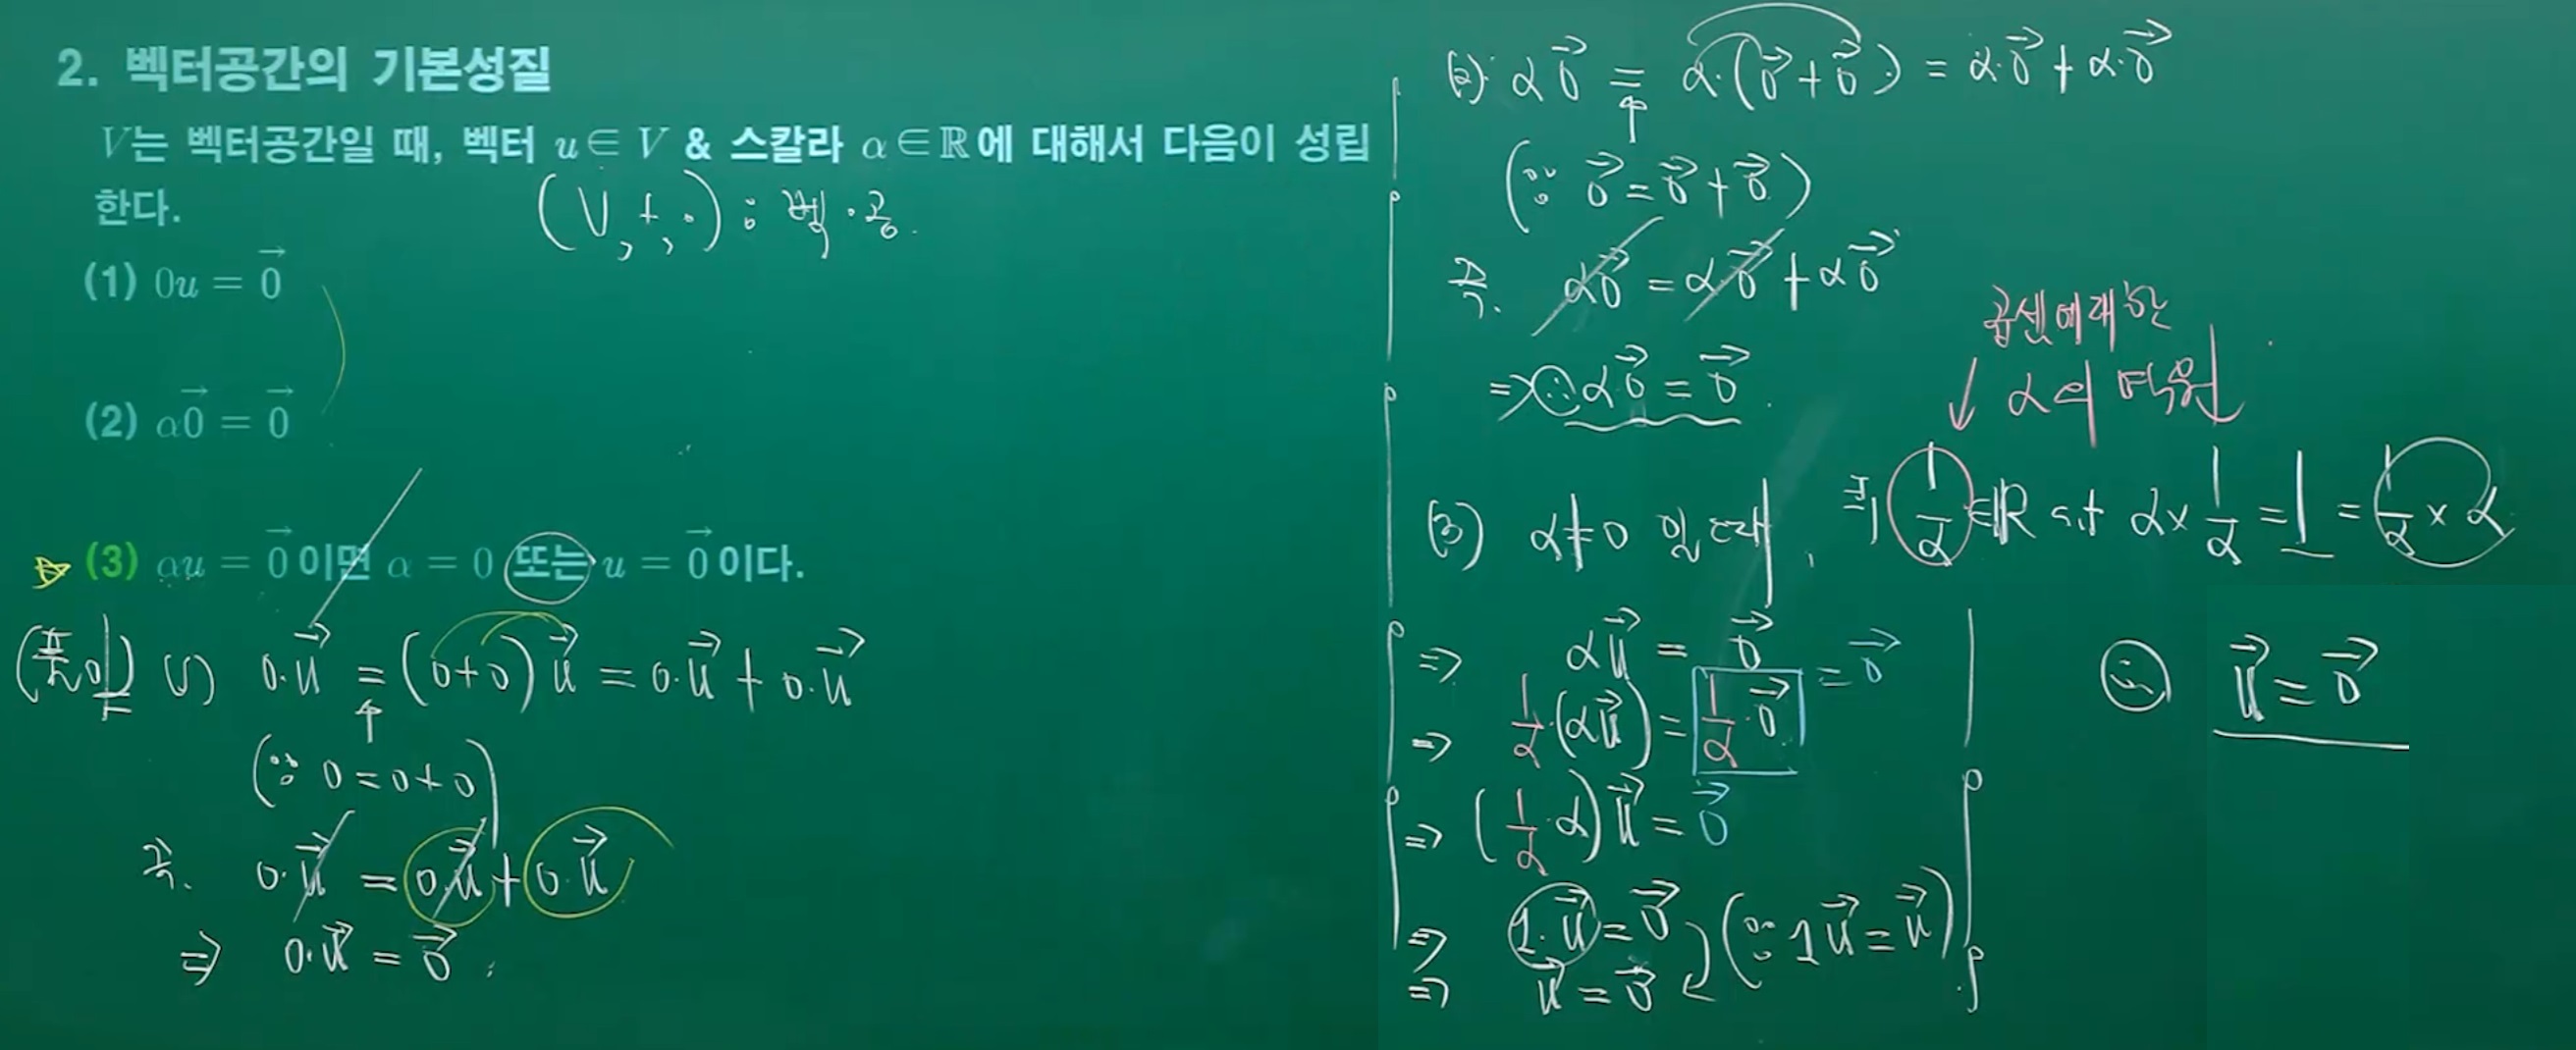 2. 벡터공간의 기본성질
V는 벡터공간일 때, 벡터 u ∈ V & 스칼라 α ∈ ℝ에 대해서 다음이 성립
한다.
(V, +, ·) : 벡.공.
(1) 0u = 0⃗
(2) α0⃗ = 0⃗
(3) αu = 0⃗ 이면 α = 0 또는 u = 0⃗ 이다.
(풀이) (1) 0·u⃗ = (0+0)u⃗ = 0·u⃗ + 0·u⃗
↑
(∵ 0 = 0+0)
즉. 0·u⃗ = 0·u⃗ + 0·u⃗
⇒ 0·u⃗ = 0⃗.
(2) α0⃗ = α·(0⃗+0⃗) = α·0⃗ + α·0⃗
↑
(∵ 0⃗ = 0⃗+0⃗)
즉. α0⃗ = α·0⃗ + α0⃗
⇒ ∴ α0⃗ = 0⃗.
곱셈에대한
↓ α의 역원
(3) α≠0 일 때, ∃ 1/α ∈ ℝ s.t α × 1/α = 1 = 1/α × α
⇒ αu⃗ = 0⃗
⇒ 1/α·(αu⃗) = 1/α·0⃗ = 0⃗
⇒ (1/α·α)u⃗ = 0⃗
⇒ 1·u⃗ = 0⃗ (∵ 1u⃗ = u⃗)
⇒ u⃗ = 0⃗
∴ u⃗ = 0⃗